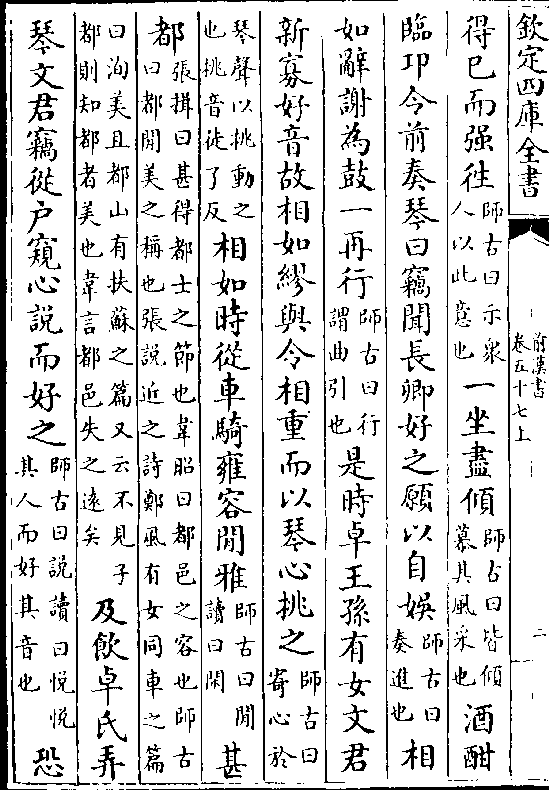 欽定四庫全書
前漢書
卷五十七上
二
得已而强徃師古曰示衆人以此意也一坐盡傾師古曰皆傾慕其風采也酒酣
臨卭令前奏琴曰竊聞長卿好之願以自娛師古曰奏進也相
如辭謝為鼓一再行師古曰行謂曲引也是時卓王孫有女文君
新寡好音故相如繆與令相重而以琴心挑之師古曰寄心於
琴聲以挑動之也挑音徒了反相如時從車騎雍容閒雅師古曰閒讀曰閑甚
都張揖曰甚得都士之節也韋昭曰都邑之容也師古曰都閒美之稱也張説近之詩鄭風有女同車之篇
曰洵美且都山有扶蘇之篇又云不見子都則知都者美也韋言都邑失之逺矣及飲卓氏弄
琴文君竊從户窺心説而好之師古曰説讀曰悦悦其人而好其音也恐